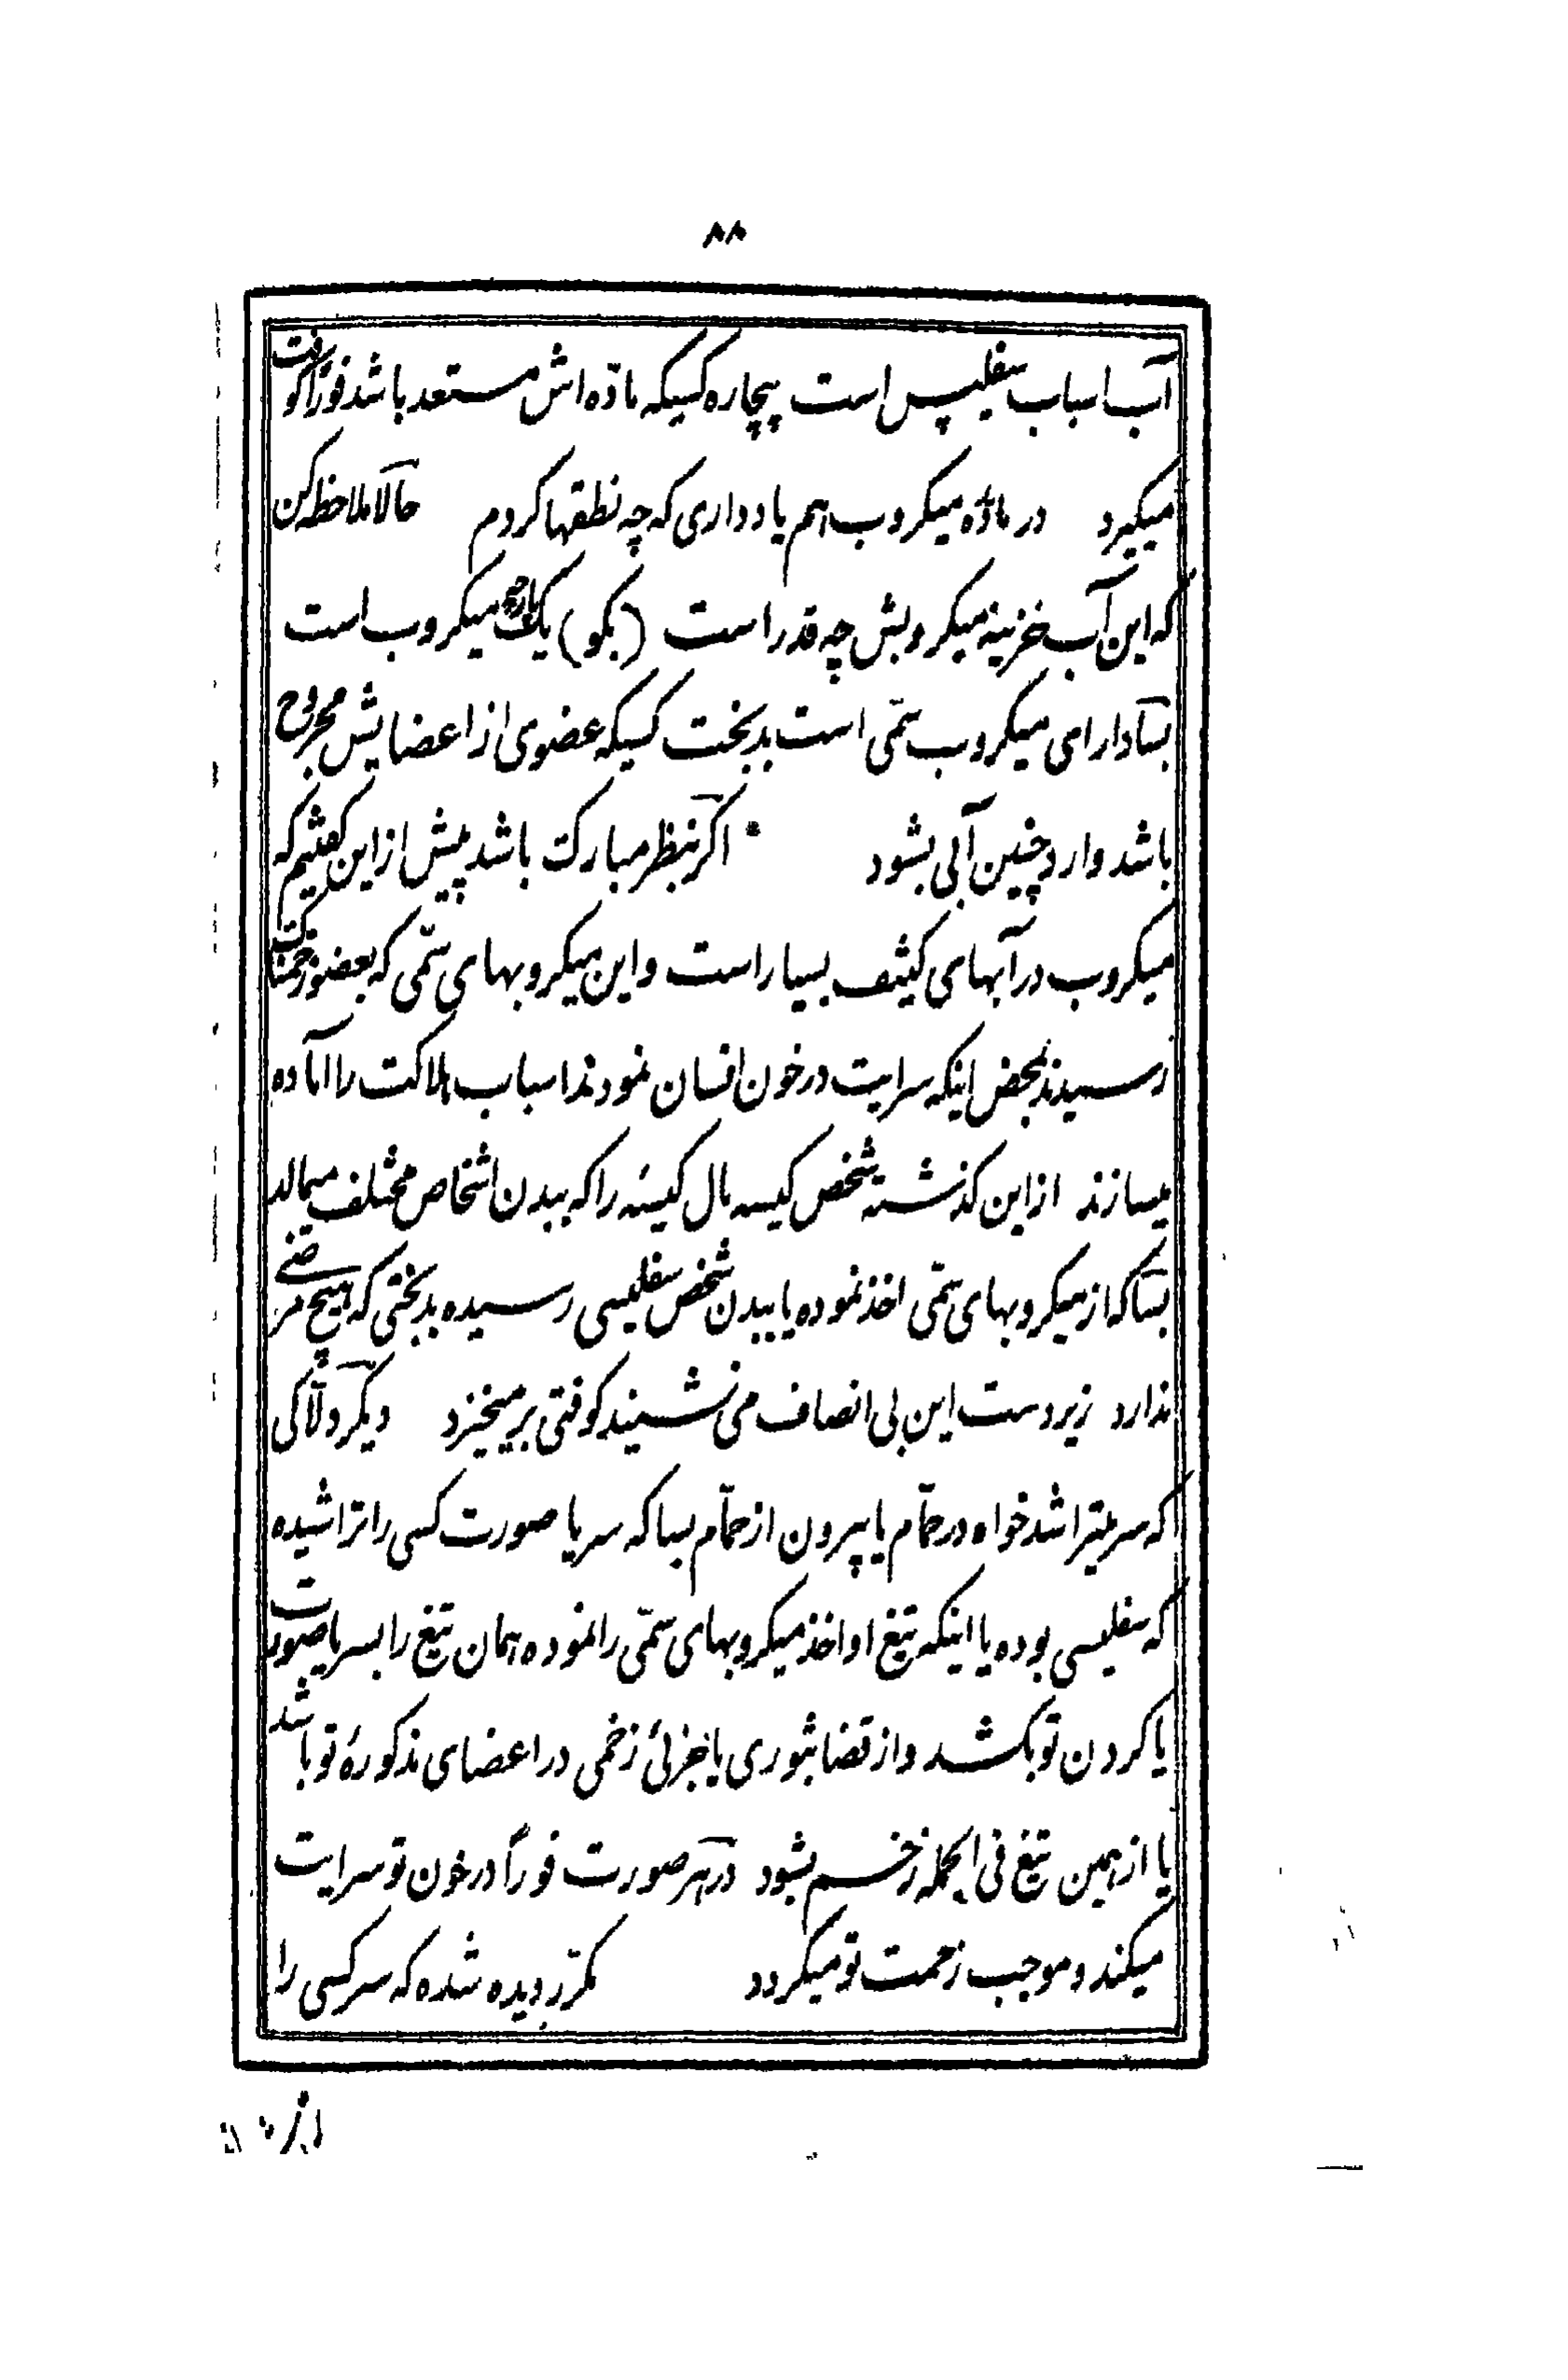 ۸۸
آب اسباب سفلیس است بیچاره کسیکه مادّه اش مستعد باشد فوراً کوفت
میگیرد در مادّه میکروب هم یاد داری که چه نطقها کردم حالا ملاحظه کن
که این آب خزینه میکروبش چه قدر است (بگو) یکپارچه میکروب است
بسا دارای میکروب سمّی است بدبخت کسیکه عضوی از اعضایش مجروح
باشد وارد چنین آبی بشود * اگر بنظر مبارکت باشد پیش از این گفتیم که
میکروب در آبهای کثیف بسیار است و این میکروبهای سمّی که بعضو زخمناک
رسیدند بمحض اینکه سرایت در خون انسان نمودند اسباب هلاکت را آماده
میسازند از این گذشته شخص کیسه مال کیسهٔ را که ببدن اشخاص مختلف میمالد
بسا که از میکروبهای سمّی اخذ نموده یا ببدن شخص سفلیسی رسیده بدبختی که هیچ مرضی
ندارد زیر دست این بی انصاف می نشیند کوفتی بر میخیزد دیگر دلّاکی
که سر میتراشد خواه در حمّام یا بیرون از حمّام بسا که سر یا صورت کسی را تراشیده
که سفلیسی بوده یا اینکه تیغ او اخذ میکروبهای سمّی را نموده همان تیغ را بسر یا صورت
یا گردن تو بکشد و از قضا بثوری یا جزئی زخمی در اعضای مذکورهٔ تو باشد
یا از همین تیغ فی الجمله زخم بشود در هر صورت فوراً در خون تو سرایت
میکند و موجب زحمت تو میگردد مکرّر دیده شده که سر کسی را